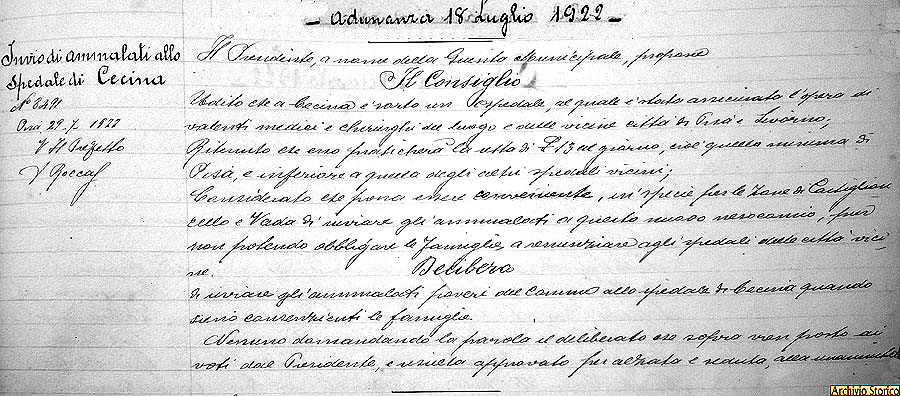 - Adunanza 18 Luglio 1922 -
Invio di ammalati allo
Spedale di Cecina
N° 8491
Pisa 29-7-1922
Il Prefetto
Il Presidente, a nome della Giunta Municipale, propone
Il Consiglio
Udito che a Cecina è sorto un Ospedale, al quale è stato assicurata l'opera di
valenti medici e chirurghi del luogo e delle vicine città di Pisa e Livorno;
Ritenuto che esso praticherà la retta di £ 13 al giorno, cioè quella minima di
Pisa, e inferiore a quella degli altri spedali vicini;
Considerato che possa essere conveniente, in specie per le zone di Castiglion-
cello e Vada di inviare gli ammalati a questo nuovo nosocomio, pur
non potendo obbligare le famiglie, a renunziare agli spedali delle città vici-
ne.
Delibera
di inviare gli ammalati poveri del Comune allo spedale di Cecina quando
sieno consenzienti le famiglie.
Nessuno domandando la parola il deliberato che sopra vien posto ai
voti dal Presidente, e resulta approvato per alzata e seduta, alla unanimità
Archivio Storico